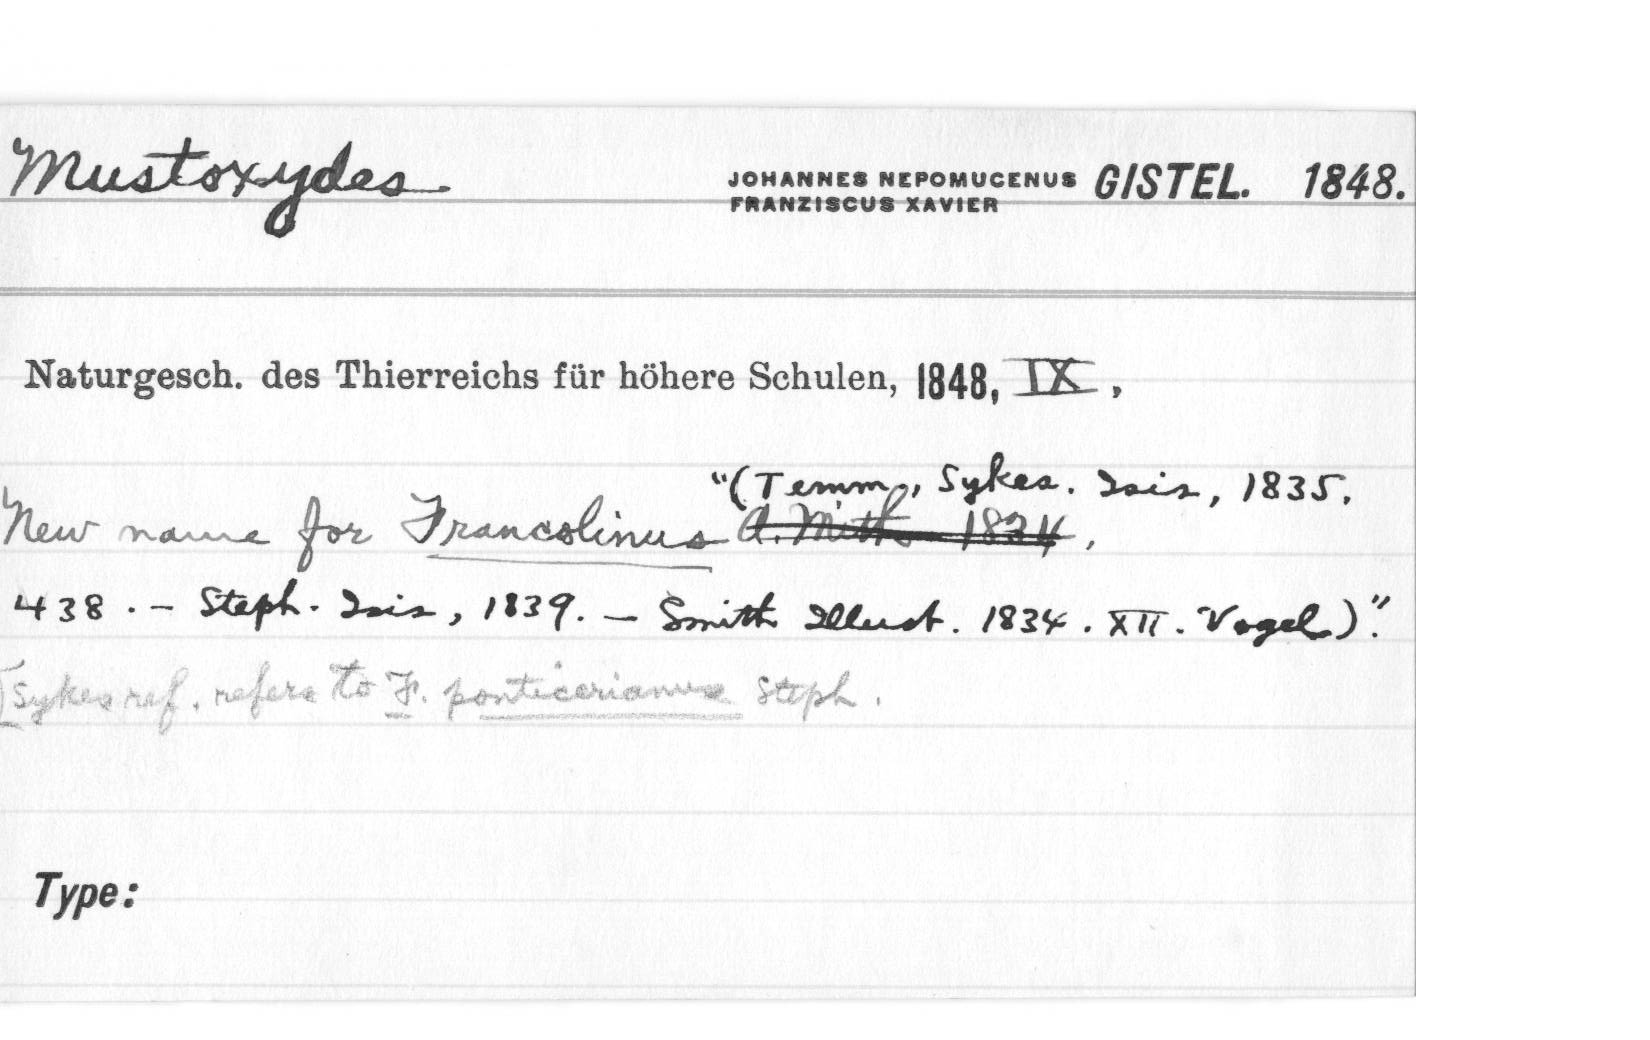 Mustoxydes. JOHANNES NEPOMUCENUS FRANZISCUS XAVIER GISTEL. 1848.
Naturgesch. des Thierreichs für höhere Schulen, 1848, IX,
"(Temm., Sykes. Isis, 1835.
New name for Francolinus A. Smith 1834,
438. — Steph. Isis, 1839. — Smith Illust. 1834. XII. Vogel)."
[Sykes ref. refers to F. ponticerianus Steph.
Type: